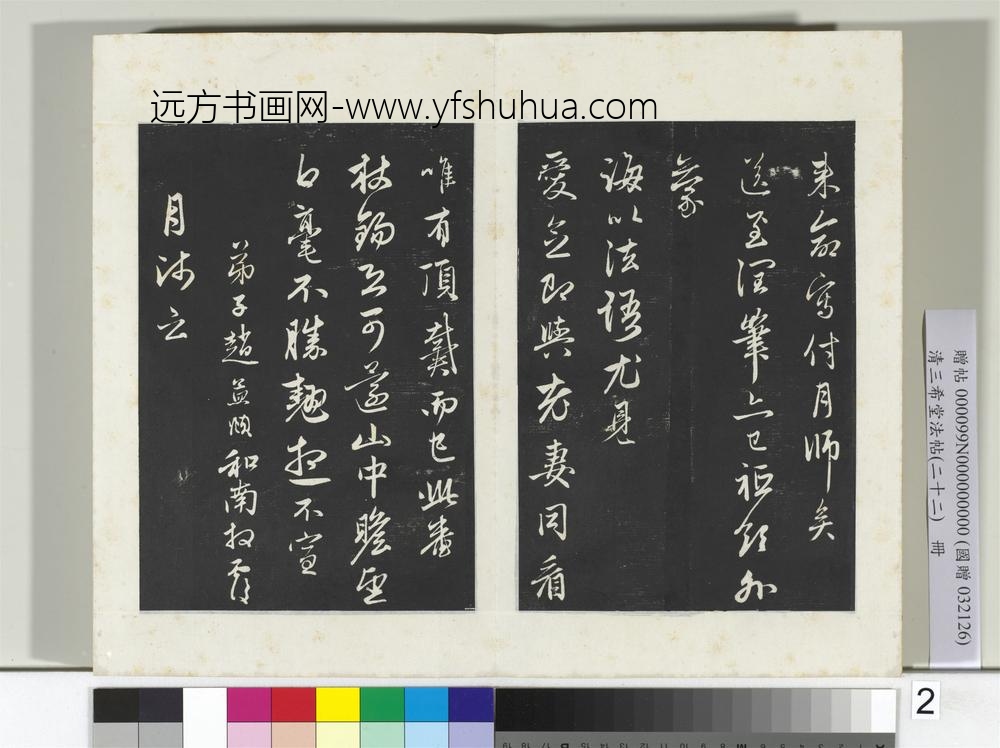 远方书画网-www.yfshuhua.com
來命寫付月師矣
送至潤筆上已祗領外
蒙
誨以法語尤見
愛念即與老妻同看
唯有頂戴而已此番
杖錫又可還山中瞻望
白毫不勝翹想不宣
弟子趙孟頫和南拜覆
月師之
贈帖 000099N000000000 (國贈 032126)
清三希堂法帖(二十二) 冊
2